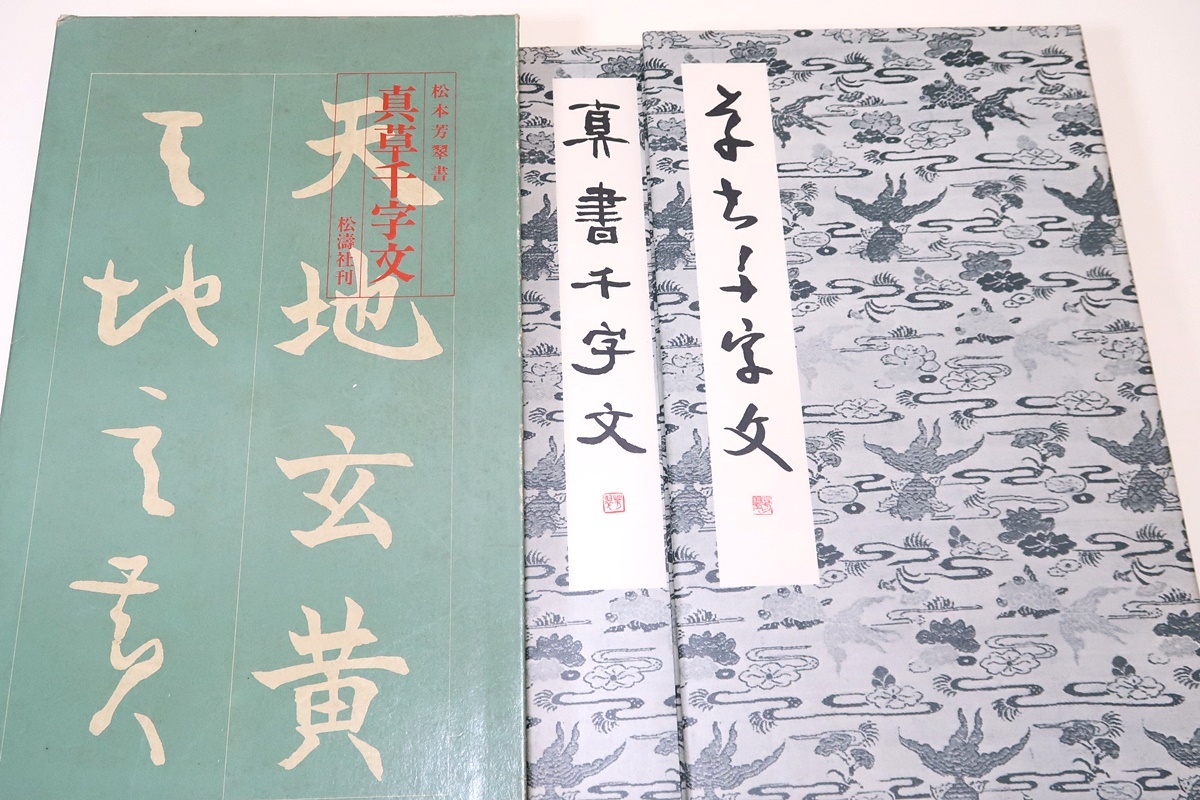 松本芳翠書
真草千字文
松濤社刊
天地玄黄
天地玄黄
真書千字文
草書千字文